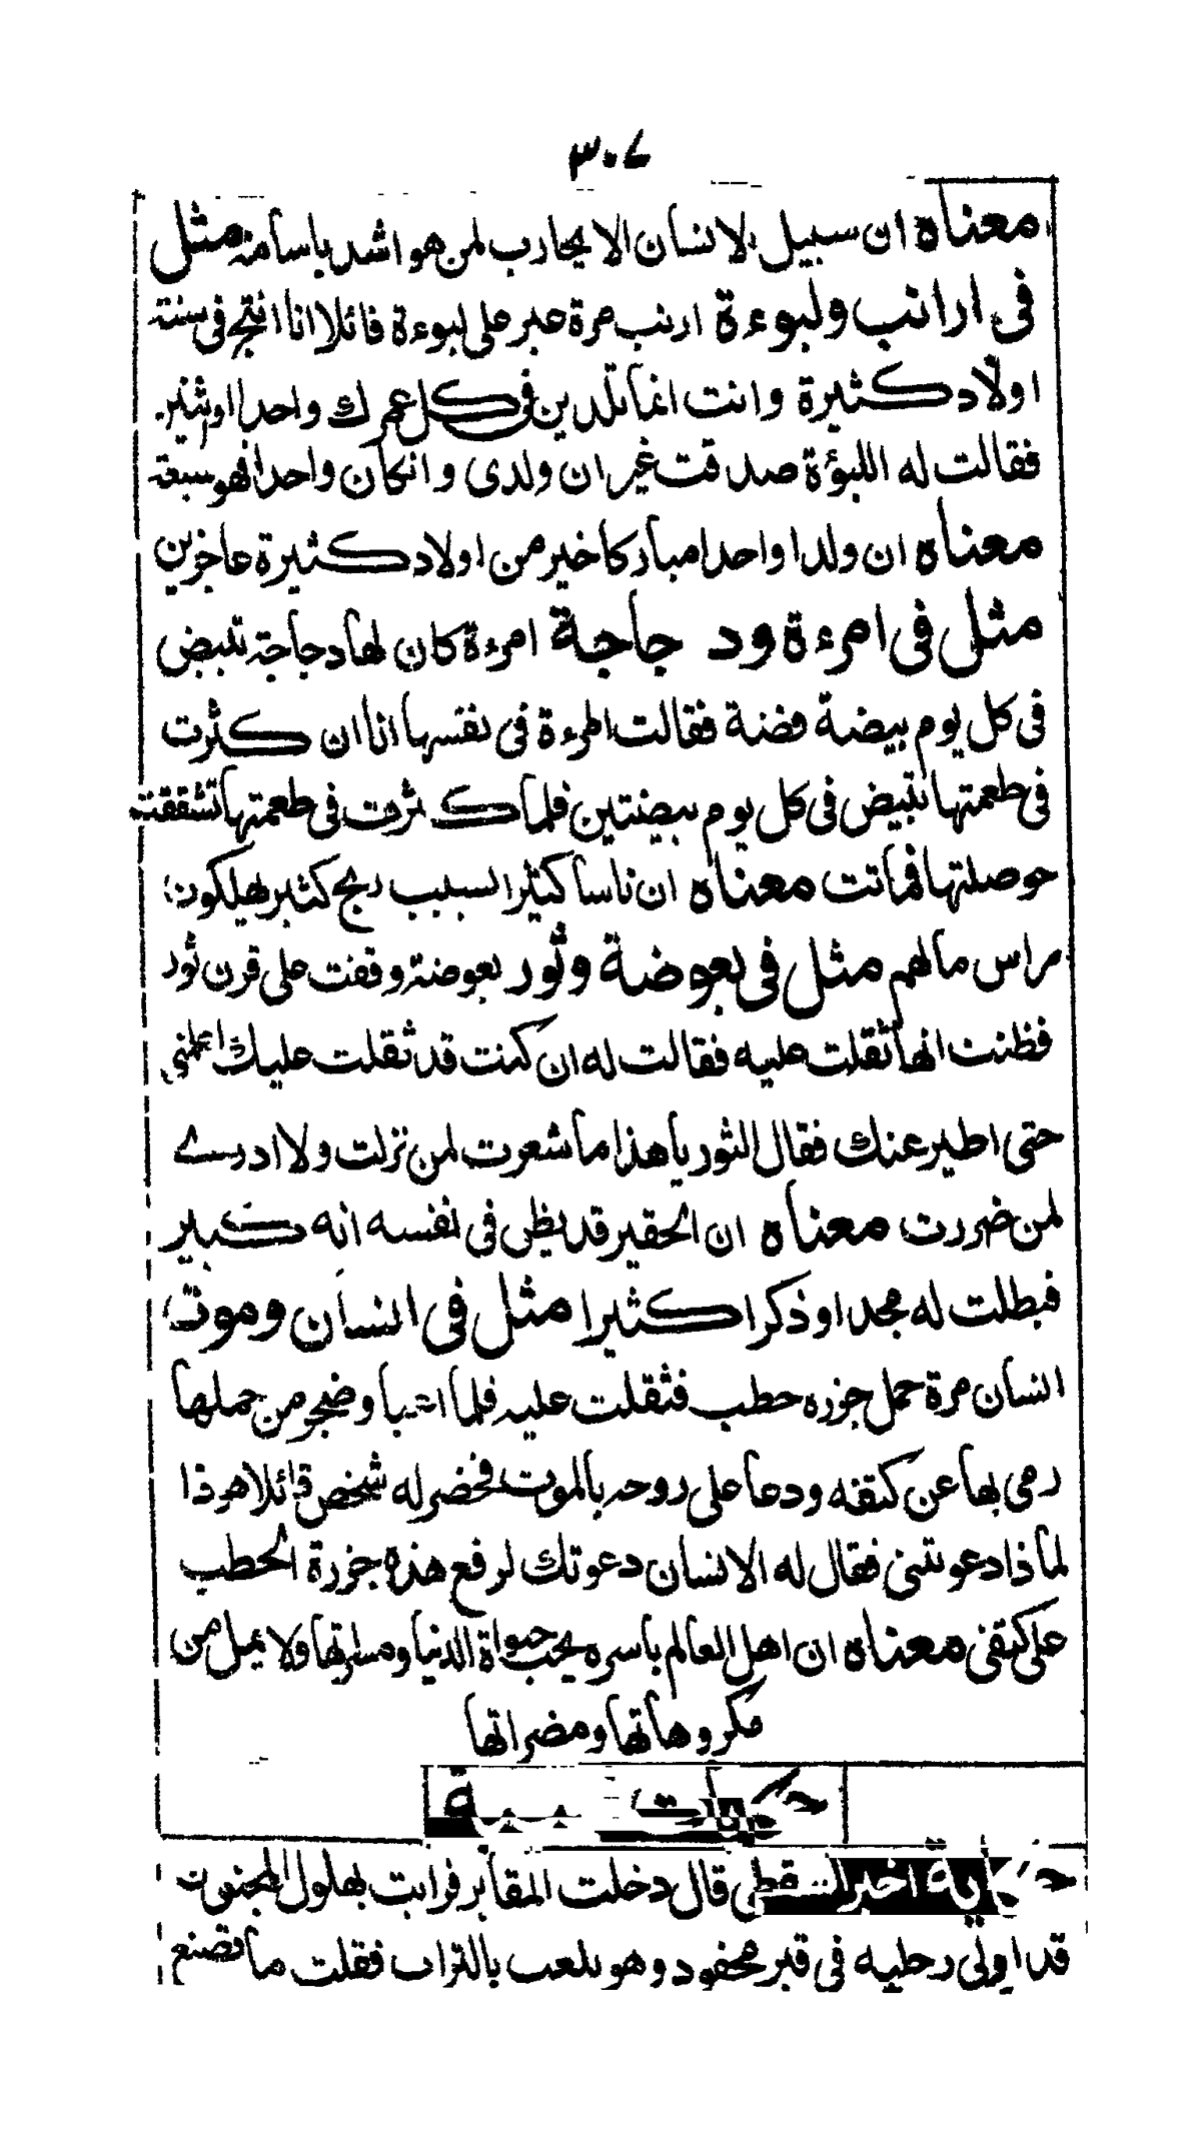 ٣٠٧
معناه ان سبيل الانسان الا يحارب لمن هو اشد باسا منه مثل
فى ارانب ولبوءة ارنب مرة عبر على لبوءة قائلا انا انتج فى سنة
اولاد كثيرة وانت انما تلدين فى كل عمرك واحدا او اثنين
فقالت له اللبؤة صدقت غير ان ولدى وانكان واحدا فهو سبعة
معناه ان ولدا واحدا مباركا خير من اولاد كثيرة عاجزين
مثل فى امرءة ود جاجة امرءة كان لها دجاجة تبيض
فى كل يوم بيضة فضة فقالت المرءة فى نفسها انا ان كثرت
فى طعمتها تبيض فى كل يوم بيضتين فلما كثرت فى طعمتها تشققت
حوصلتها فماتت معناه ان ناسا كثيرا لسبب ربح كثير يهلكون
راس مالهم مثل فى بعوضة وثور بعوضة وقفت على قرن ثور
فظنت انها ثقلت عليه فقالت له ان كنت قد ثقلت عليك اعلمنى
حتى اطير عنك فقال الثور يا هذا ما شعرت لمن نزلت ولا ادرے
لمن ضررت معناه ان الحقير قد يظن فى نفسه انه كبير
فبطلت له مجدا وذكرا كثيرا مثل فى انسان وموت
انسان مرة حمل جزره حطب فثقلت عليه فلما وضجر من حملها
رمى بها عن كتفه ودعا على روحه بالموت فحضر له شخص قائلا هو ذا
لما ذا دعوتنى فقال له الانسان دعوتك لرفع هذه جزرة الحطب
على كتفى معناه ان اهل العالم باسره يحب حيواة الدنيا ومسرتها ولا يمل من
مكروهاتها ومضراتها
حكايات
حكاية اخبر السقطى قال دخلت المقابر فرايت بهلول المجنون
قد اولى رجليه فى قبر محفود وهو يلعب بالتراب فقلت ما تصنع